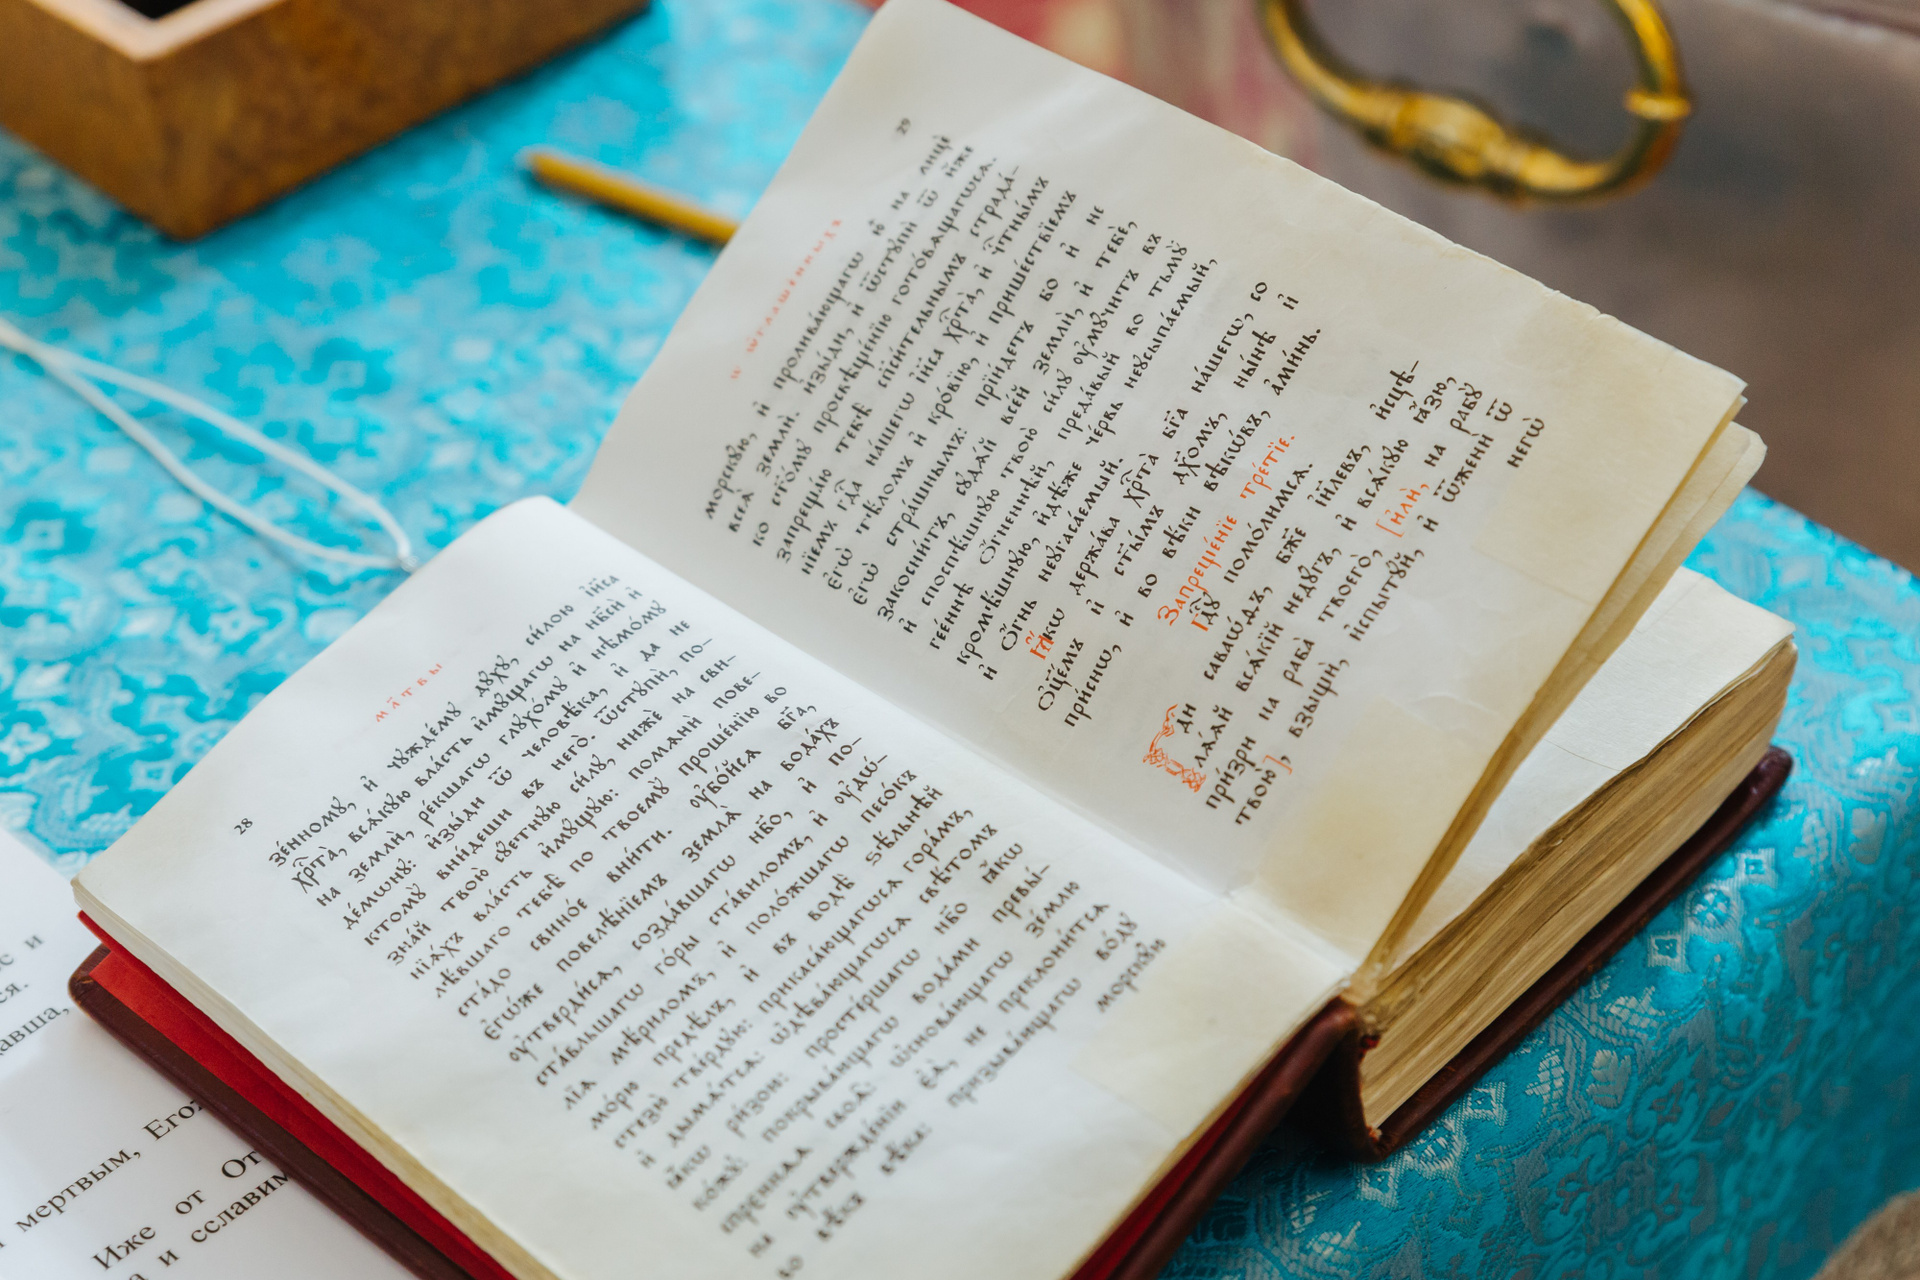 28
мл҃твы
зе́нному, и҆ чꙋжде́мꙋ дꙋ́хꙋ, си́лою і҆и҃са
хрⷭ҇та̀, всѧ́кꙋю вла́сть и҆мꙋ́щагѡ на нб҃сѝ и҆
на землѝ, ре́кшагѡ глꙋхо́мꙋ и҆ нѣмо́мꙋ
де́мѡнꙋ: и҆зы́ди ѿ человѣ́ка, и҆ да не
ктомꙋ̀ вни́деши въ него̀. ѿстꙋпѝ, по-
зна́й твою̀ сꙋ́етнꙋю си́лꙋ, нижѐ на сви-
нїѧ́хъ вла́сть и҆мꙋ́щꙋю: помѧнѝ пове-
лѣ́вшаго тебѣ̀ по твоемꙋ̀ проше́нїю во
ста́до свино́е вни́ти. ᲂу҆бо́йсѧ бг҃а,
є҆гѡ́же повелѣ́нїемъ землѧ̀ на вода́хъ
ᲂу҆тверди́сѧ, созда́вшагѡ нб҃о, и҆ по-
ста́вльшагѡ го́ры ста́виломъ, и҆ ᲂу҆дѡ́-
лїѧ мѣ́риломъ, и҆ положи́вшагѡ песо́къ
мо́рю предѣ́лъ, и҆ въ водѣ̀ ѕѣ́льнѣй
стезю̀ тве́рдꙋю: прикаса́ющагѡсѧ гора́мъ,
и҆ дымѧ́тсѧ: ѡ҆дѣва́ющагѡсѧ свѣ́томъ
ꙗ҆́кѡ ри́зою: просте́ршагѡ нб҃о ꙗ҆́кѡ
ко́жꙋ: покрыва́ющагѡ вода́ми превы́-
спреннѧѧ своѧ̑: ѡ҆снова́ющагѡ зе́млю
на ᲂу҆твержде́нїи є҆ѧ̀, не преклони́тсѧ
во вѣ́къ вѣ́ка: призыва́ющагѡ во́дꙋ
морскꙋ́ю
29
ѡ҆ ѡ҆глаше́нныхъ
морскꙋ́ю, и҆ пролива́ющагѡ ю҆̀ на лицѐ
всеѧ̀ землѝ. и҆зы́ди, и҆ ѿстꙋпѝ ѿ и҆́же
ко ст҃о́мꙋ просвѣще́нїю гото́вѧщагѡсѧ.
Запреща́ю тебѣ̀ сп҃си́тельнымъ страда́-
нїемъ гдⷭ҇а на́шегѡ і҆и҃са хрⷭ҇та̀, и҆ чⷭ҇тны́мъ
є҆гѡ̀ тѣ́ломъ и҆ кро́вїю, и҆ прише́ствїемъ
є҆гѡ̀ стра́шнымъ: прїи́детъ бо и҆ не
закосни́тъ, сꙋдѧ́й все́й землѝ, и҆ тебѐ,
и҆ споспѣ́шнꙋю твою̀ си́лꙋ ᲂу҆мꙋ́читъ въ
гее́ннѣ ѻ҆́гненнѣй, преда́вый во тьмꙋ̀
кромѣ́шнюю, и҆дѣ́же че́рвь неꙋсыпа́емый,
и҆ ѻ҆́гнь неꙋгаса́емый.
Ꙗ҆́кѡ держа́ва хрⷭ҇та̀ бг҃а на́шегѡ, со
ѻ҆ц҃е́мъ и҆ ст҃ы́мъ дх҃омъ, ны́нѣ и҆
при́снѡ, и҆ во вѣ́ки вѣкѡ́въ, а҆ми́нь.
Запреще́нїе тре́тїе.
Гдⷭ҇ꙋ помо́лимсѧ.
Гдⷭ҇и саваѡ́ѳъ, бж҃е і҆и҃левъ, и҆сцѣ-
лѧ́ѧй всѧ́кїй недꙋ́гъ, и҆ всѧ́кꙋю ꙗ҆́зю,
при́зри на раба̀ твоего̀, [и҆лѝ, на рабꙋ̀
твою̀], взыщѝ, и҆спыта́й, и҆ ѿженѝ ѿ
негѡ̀
се и
ся.
авша,
мертвым, Его
Иже от От
и сславим